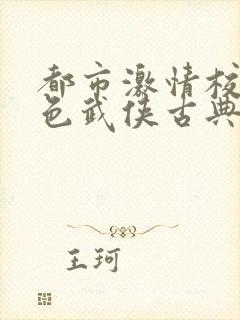 都市激情校
色武侠古典
王珂